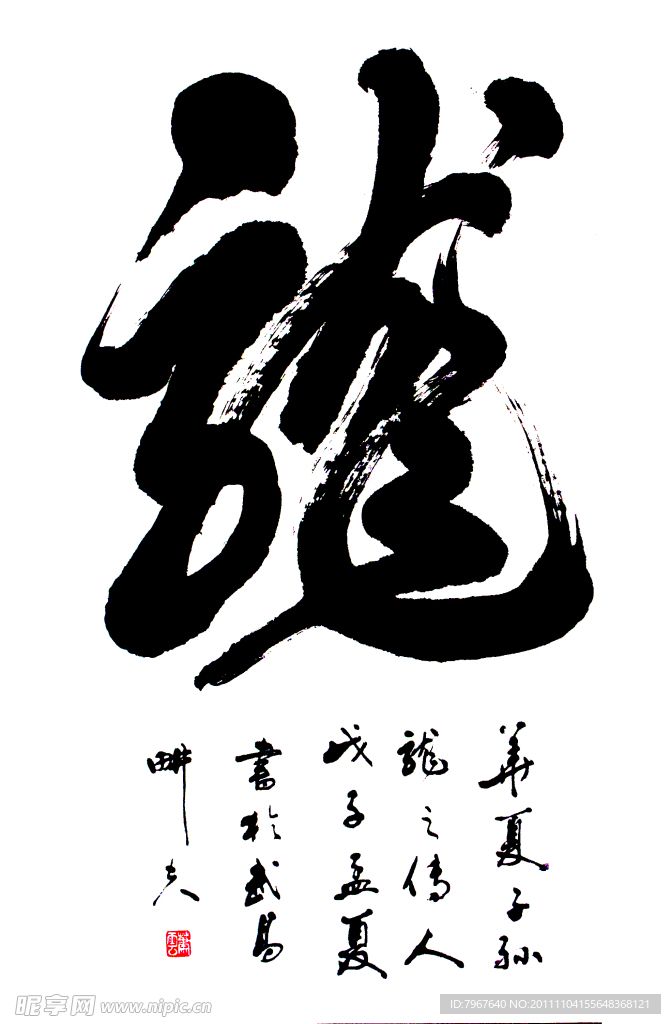 龍
華夏子孫
龍之傳人
戊子孟夏
書於武昌
畊夫
昵享网 www.nipic.cn
ID:7967640 NO:20111104155648368121